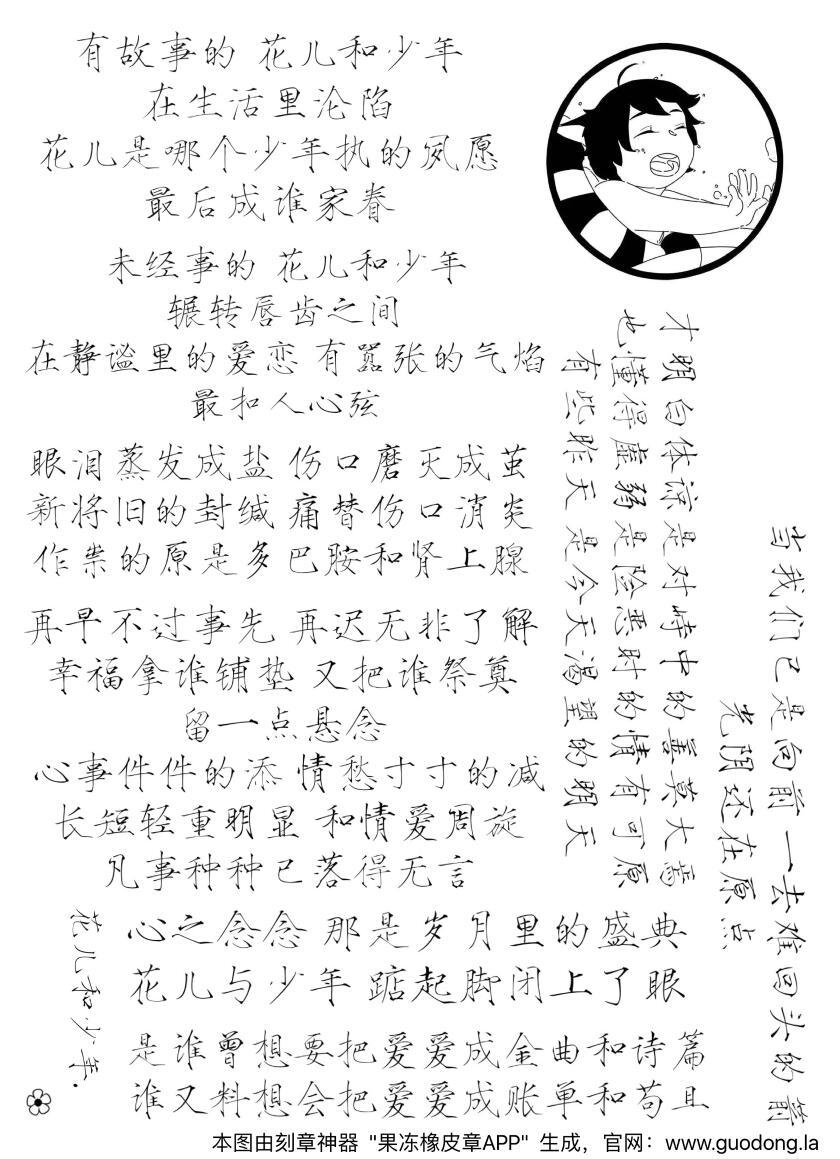 有故事的 花儿和少年
在生活里沦陷
花儿是哪个少年执的夙愿
最后成谁家眷
未经事的 花儿和少年
辗转唇齿之间
在静谧里的爱恋 有嚣张的气焰
最扣人心弦
眼泪蒸发成盐 伤口磨灭成茧
新将旧的封缄 痛替伤口消炎
作祟的原是多巴胺和肾上腺
再早不过事先 再迟无非了解
幸福拿谁铺垫 又把谁祭奠
留一点悬念
心事件件的添 情愁寸寸的减
长短轻重明显 和情爱周旋
凡事种种已落得无言
当我们已是向前 一去难回头的箭
光阴还在原点
才明白体谅是对峙中的善莫大焉
也懂得虚弱是险恶时的情有可原
有些昨天 是今天渴望的明天
心之念念 那是岁月里的盛典
花儿与少年 踮起脚闭上了眼
是谁曾想要把爱爱成金曲和诗篇
谁又料想会把爱爱成账单和苟且
花儿和少年.
本图由刻章神器 "果冻橡皮章APP" 生成，官网：www.guodong.la